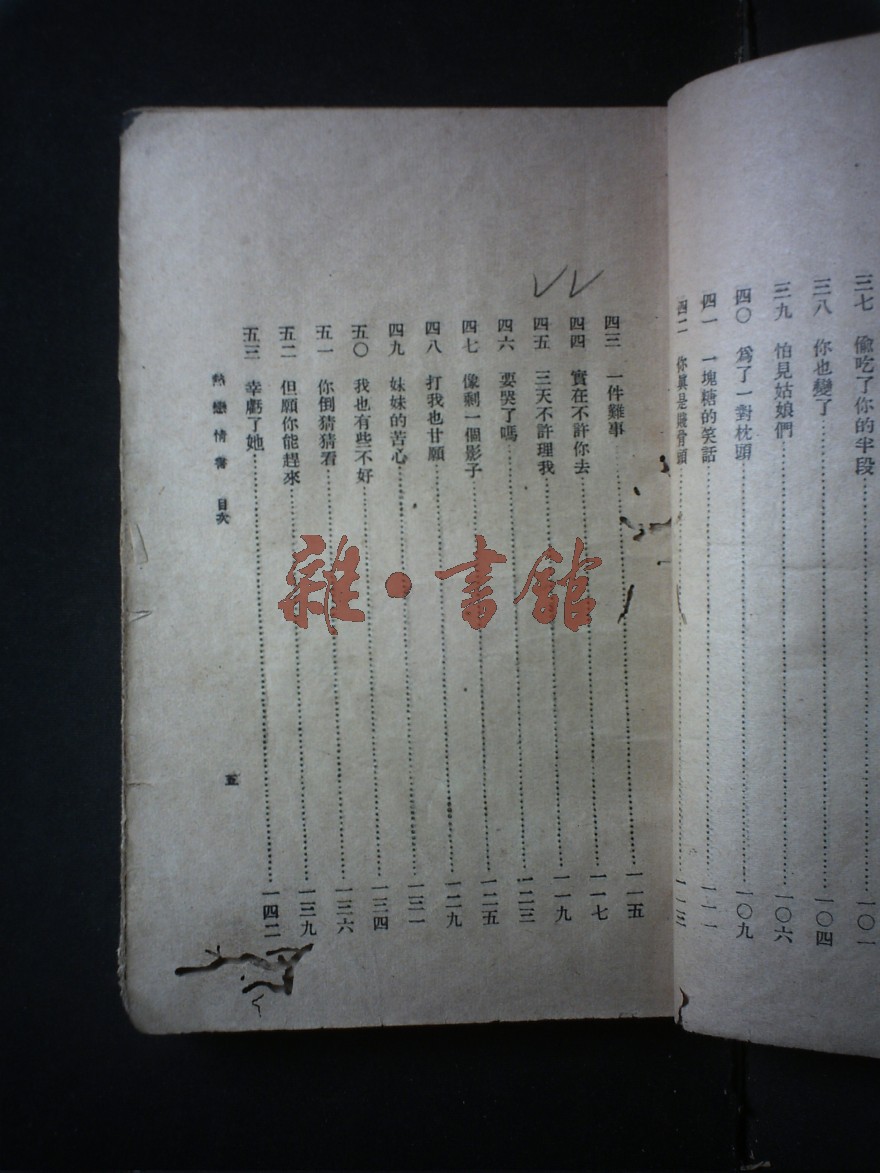 三七 偷吃了你的半段……一〇一
三八 你也變了……一〇四
三九 怕見姑娘們……一〇六
四〇 爲了一對枕頭……一〇九
四一 一塊糖的笑話……一一一
四二 你眞是賤骨頭……一一三
四三 一件難事……一一五
四四 實在不許你去……一一七
四五 三天不許理我……一一九
四六 要哭了嗎……一二三
四七 像剩一個影子……一二五
四八 打我也甘願……一二九
四九 妹妹的苦心……一三一
五〇 我也有些不好……一三四
五一 你倒猜猜看……一三六
五二 但願你能趕來……一三九
五三 幸虧了她……一四二
熱戀情書 目次
五
雜·書館